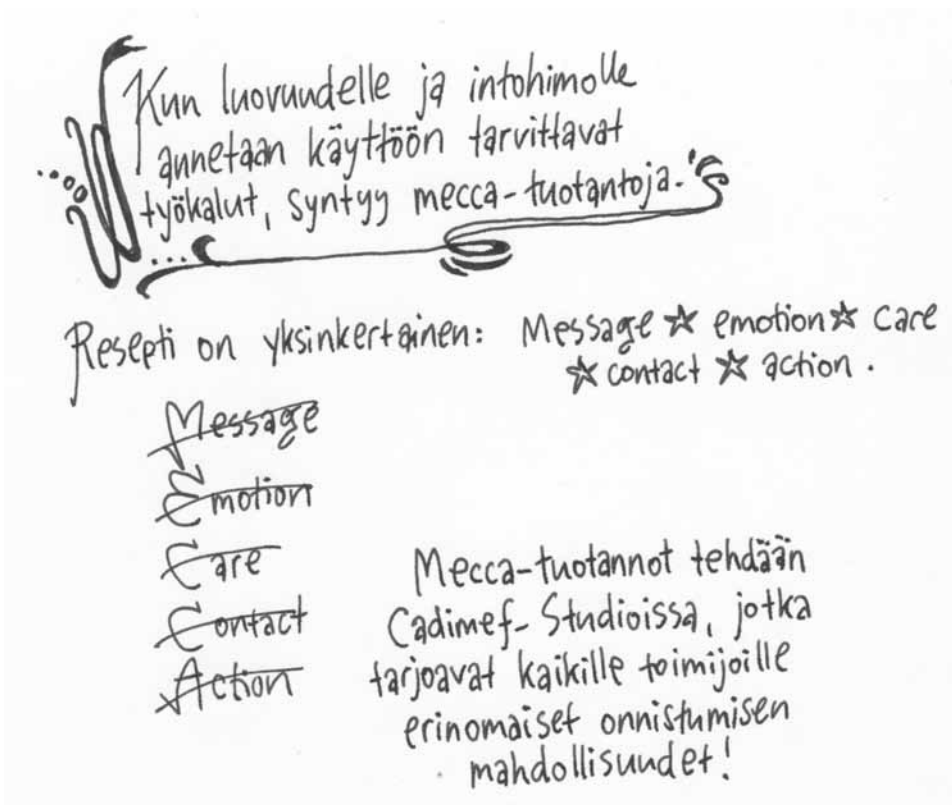 Kun luovuudelle ja intohimolle
annetaan käyttöön tarvittavat
työkalut, syntyy mecca-tuotantoja.
Resepti on yksinkertainen: Message ☆ emotion ☆ care
☆ contact ☆ action.
Message
Emotion
Care
Contact
Action
Mecca-tuotannot tehdään
Cadimef-Studioissa, jotka
tarjoavat kaikille toimijoille
erinomaiset onnistumisen
mahdollisuudet!